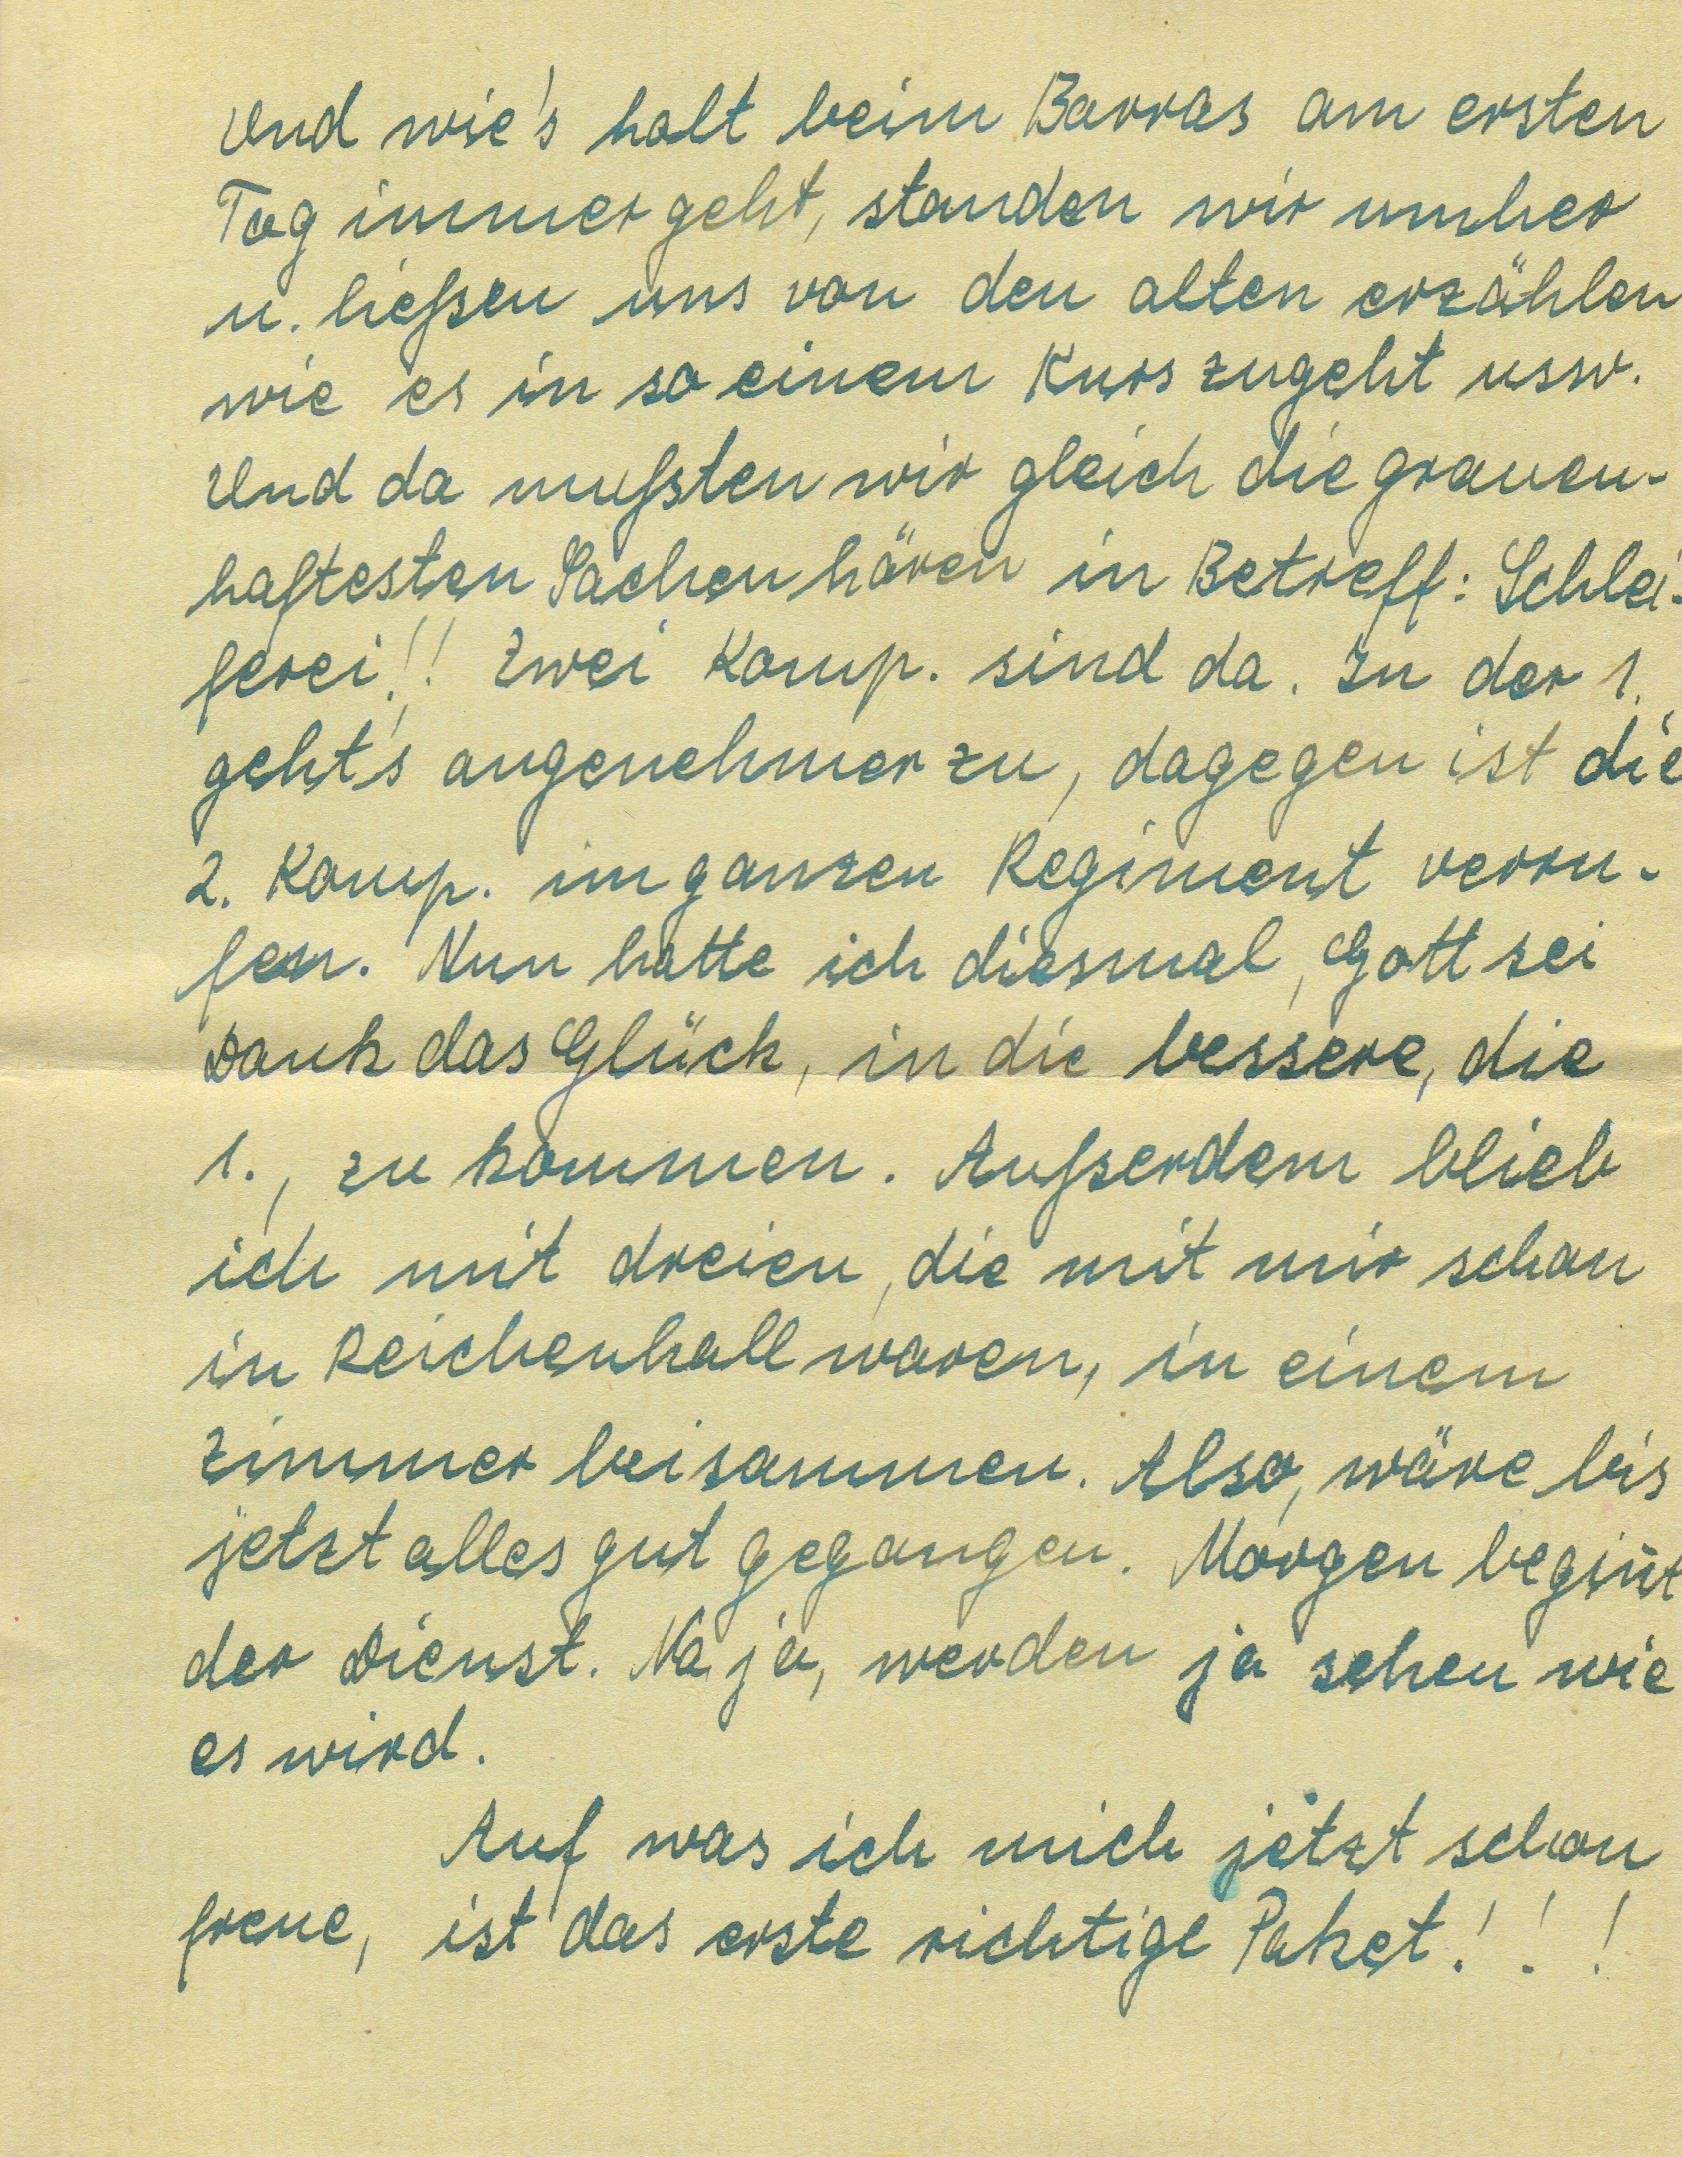 Und wie's halt beim Barras am ersten
Tag immer geht, standen wir umher
u. ließen uns von den alten erzählen
wie es in so einem Kurs zugeht usw.
Und da mußten wir gleich die grauen-
haftesten Sachen hören in Betreff: Schlei-
ferei!! Zwei Komp. sind da. In der 1.
geht's angenehmer zu, dagegen ist die
2. Komp. im ganzen Regiment verru-
fen. Nun hatte ich diesmal, Gott sei
Dank das Glück, in die bessere, die
1., zu kommen. Außerdem blieb
ich mit dreien, die mit mir schon
in Reichenhall waren, in einem
Zimmer beisammen. Also, wäre bis
jetzt alles gut gegangen. Morgen begin̄t
der Dienst. Na ja, werden ja sehen wie
es wird.
Auf was ich mich jetzt schon
freue, ist das erste richtige Paket!!!